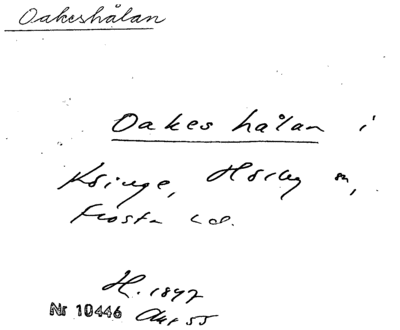 Oakeshålan
Oakes hålan i
Kringe, Hörby sn,
Frosta hd.
H. 1897
Nr 10446